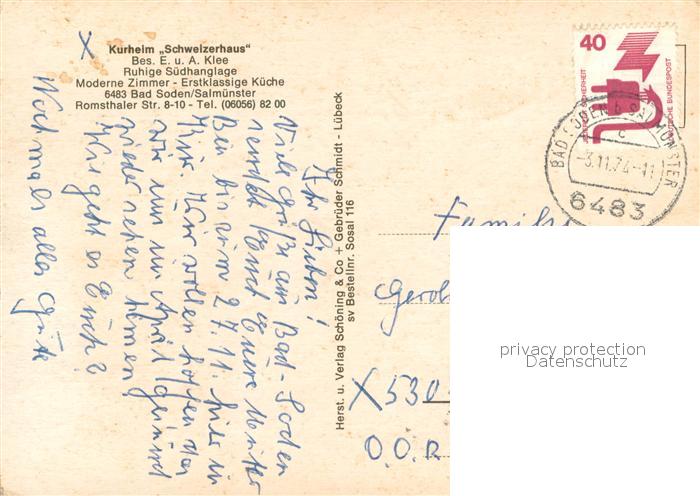 X
Kurheim „Schweizerhaus"
Bes. E. u. A. Klee
Ruhige Südhanglage
Moderne Zimmer - Erstklassige Küche
6483 Bad Soden/Salmünster
Romsthaler Str. 8-10 - Tel. (06056) 82 00
Ihr Lieben!
Viele Grüße aus Bad-Soden
sendet Euch Eure Mutter
Bin bis zum 27.11. hier in
Kur. Wir wollen hoffen das
wir uns im April gesund
wiedersehen können
Wie geht es Euch?
Nochmals alles Gute
Herst. u. Verlag Schöning & Co + Gebrüder Schmidt - Lübeck
sv Bestellnr. Sosal 116
40
DEUTSCHE BUNDESPOST
BAD SODEN - SALMÜNSTER
c
-3.11.74-11
6483
Familie
Gerol
X 530
privacy protection
Datenschutz